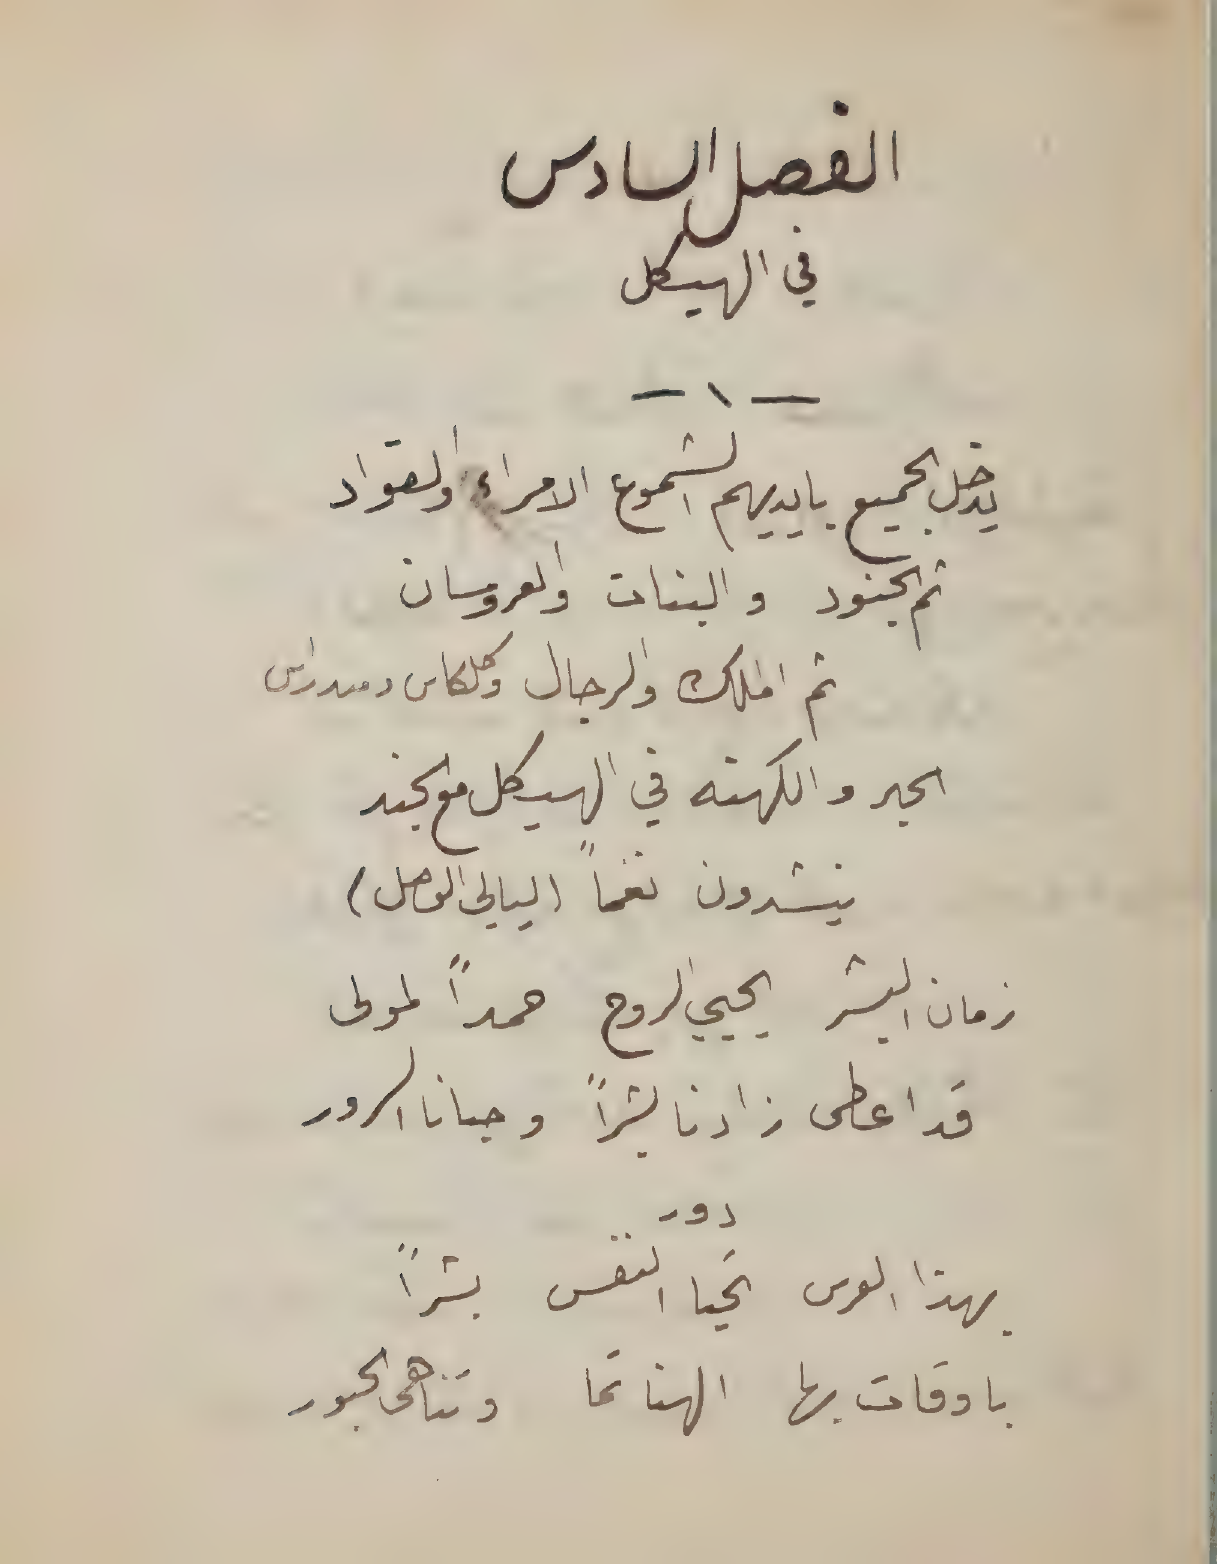 الفصل السادس
في الهيكل
— ١ —
يدخل الجميع بايديهم الشموع الامراء والقواد
ثم الجنود والبنات والعروسان
ثم الملك والرجال وكلكاس
الحبر والكهنه في الهيكل مع الجند
ينشدون نغماً (ليالي الوصل)
زمان البشر يحيي الروح حمداً لمولى
قد اعطى زادنا بشراً وحبانا السرور
دور
بهذا العرس تحيا النفس بشراً
باوقات بها الهنا تما وتناهى الحبور